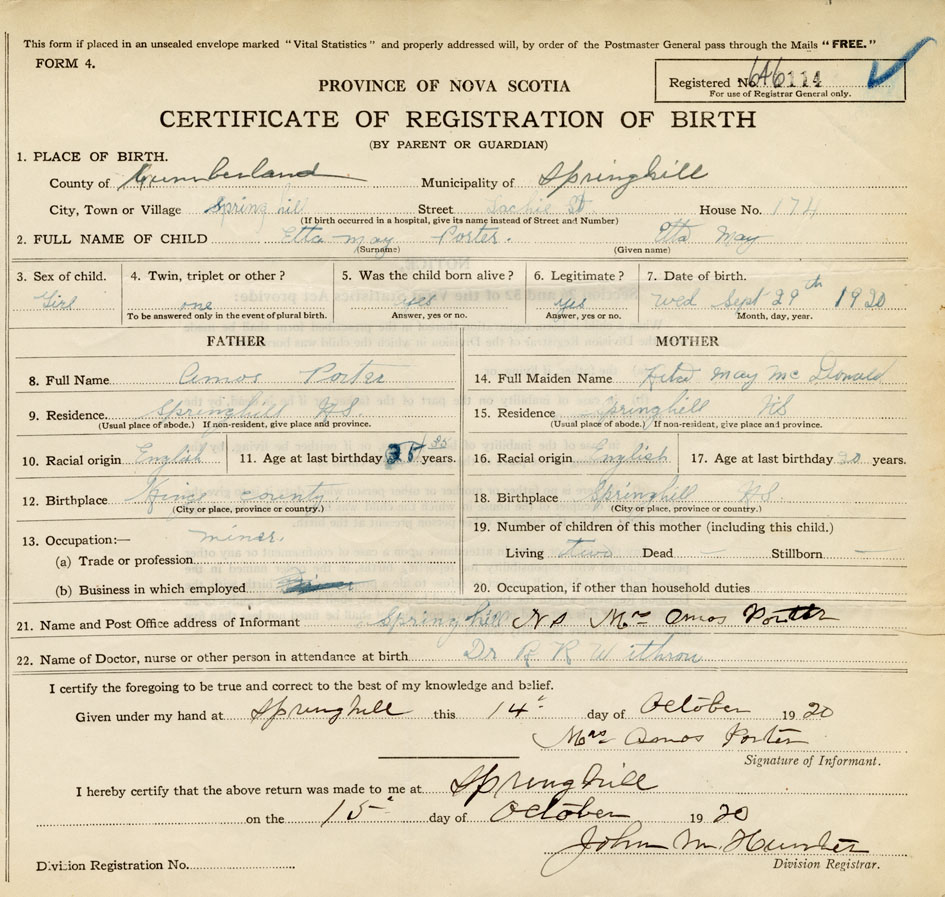 This form if placed in an unsealed envelope marked "Vital Statistics" and properly addressed will, by order of the Postmaster General pass through the Mails "FREE."
FORM 4.
PROVINCE OF NOVA SCOTIA
Registered No. 646114
For use of Registrar General only.
CERTIFICATE OF REGISTRATION OF BIRTH
(BY PARENT OR GUARDIAN)
1. PLACE OF BIRTH.
County of Cumberland Municipality of Springhill
City, Town or Village Spring hill Street St. House No. 174
(If birth occurred in a hospital, give its name instead of Street and Number)
2. FULL NAME OF CHILD Etta may Porter. Etta May
(Surname) (Given name)
3. Sex of child. 4. Twin, triplet or other? 5. Was the child born alive? 6. Legitimate? 7. Date of birth.
Girl one yes yes Wed Sept 29th 1920
To be answered only in the event of plural birth. Answer, yes or no. Answer, yes or no. Month, day, year.
FATHER
8. Full Name Amos Porter
9. Residence. Springhill NS.
(Usual place of abode.) If non-resident, give place and province.
10. Racial origin English 11. Age at last birthday years.
12. Birthplace Kings county
(City or place, province or country.)
13. Occupation:— miner.
(a) Trade or profession
(b) Business in which employed
MOTHER
14. Full Maiden Name May Mc Donald
15. Residence Springhill NS
(Usual place of abode.) If non-resident, give place and province.
16. Racial origin English 17. Age at last birthday years.
18. Birthplace Springhill NS.
(City or place, province or country.)
19. Number of children of this mother (including this child.)
Living two Dead – Stillborn –
20. Occupation, if other than household duties
21. Name and Post Office address of Informant Springhill NS Mrs Amos Porter
22. Name of Doctor, nurse or other person in attendance at birth Dr R R Withrow
I certify the foregoing to be true and correct to the best of my knowledge and belief.
Given under my hand at Springhill this 14th day of October 1920
Mrs Amos Porter
Signature of Informant.
I hereby certify that the above return was made to me at Springhill
on the 15th day of October 1920
John M. Hunter
Division Registration No. Division Registrar.